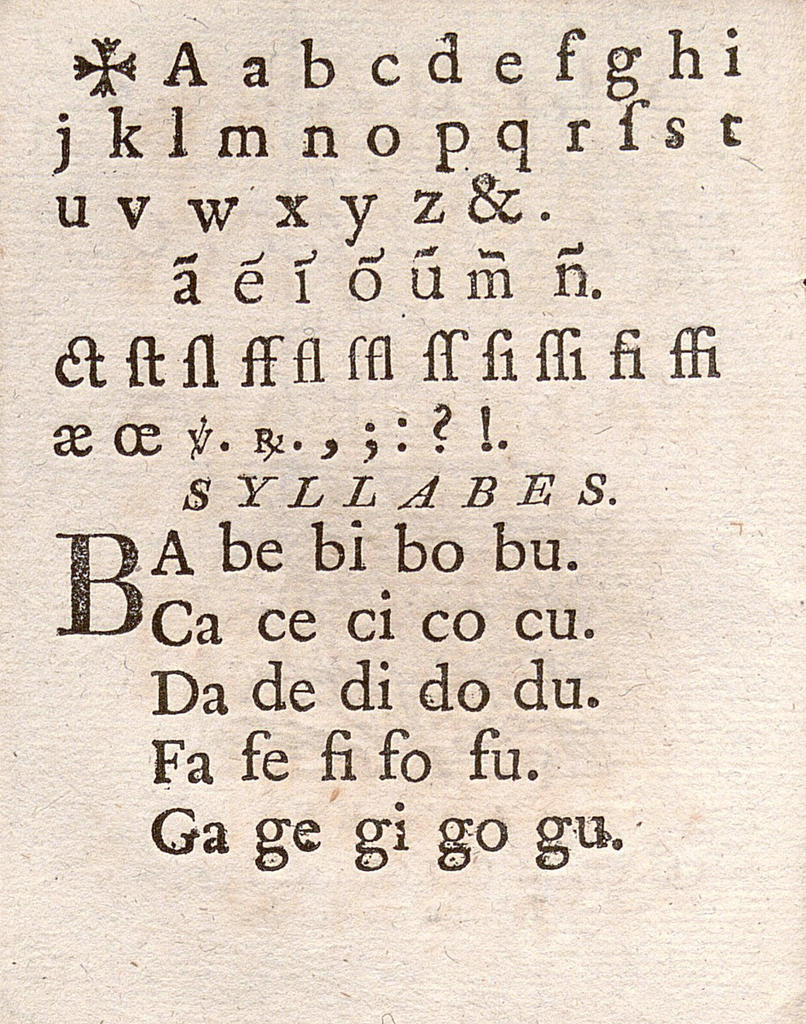 ✠ A a b c d e f g h i
j k l m n o p q r ſ s t
u v w x y z &.
ã é ĩ õ ũ m̃ ñ.
ct ſt ſl ff fl ſfl ſſ ſi ſſi fi ffi
æ œ ℣. ℟. , ; : ? !.
SYLLABES.
BA be bi bo bu.
Ca ce ci co cu.
Da de di do du.
Fa fe fi fo fu.
Ga ge gi go gu.